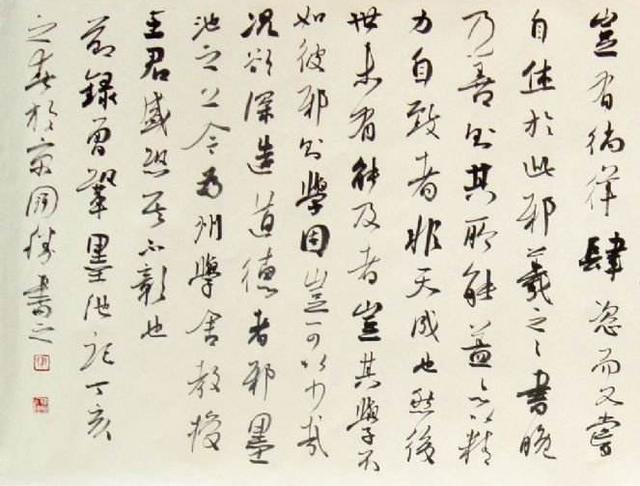 豈有徜徉肆恣而又嘗
自休於此邪羲之之書晚
乃善則其所能蓋亦以精
力自致者非天成也然後
世未有能及者豈其學不
如彼邪則學固豈可以少哉
况欲深造道德者邪墨
池之上今為州學舍教授
王君盛恐其不彰也
節錄曾鞏墨池記丁亥
之春於京國勝書之